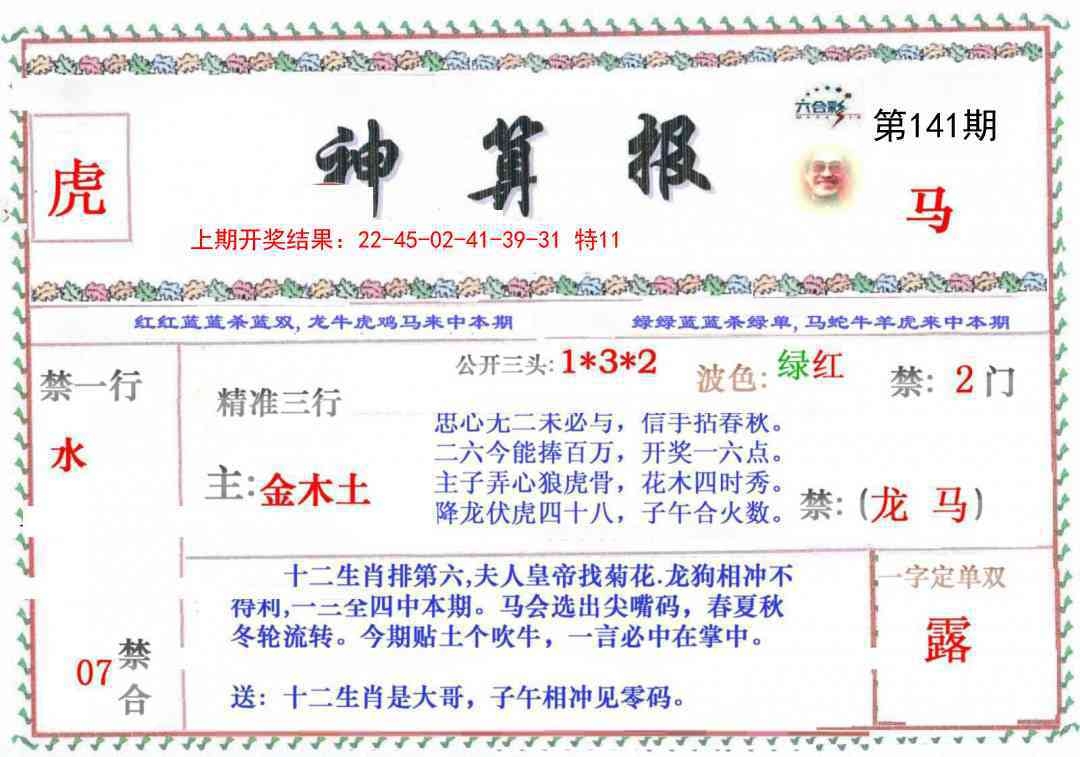 神算报
六合彩
第141期
虎
马
上期开奖结果：22-45-02-41-39-31 特11
红红蓝蓝杀蓝双，龙牛虎鸡马来中本期
绿绿蓝蓝杀绿单，马蛇牛羊虎来中本期
禁一行
水
公开三头:1*3*2
波色:绿红
禁: 2门
精准三行
主:金木土
思心无二未必与，信手拈春秋。
二六今能捧百万，开奖一六点。
主子弄心狼虎骨，花木四时秀。
降龙伏虎四十八，子午合火数。
禁:(龙 马)
十二生肖排第六,夫人皇帝找菊花.龙狗相冲不
得利,一三全四中本期。马会选出尖嘴码，春夏秋
冬轮流转。今期贴土个吹牛，一言必中在掌中。
送：十二生肖是大哥，子午相冲见零码。
一字定单双
露
07
禁合